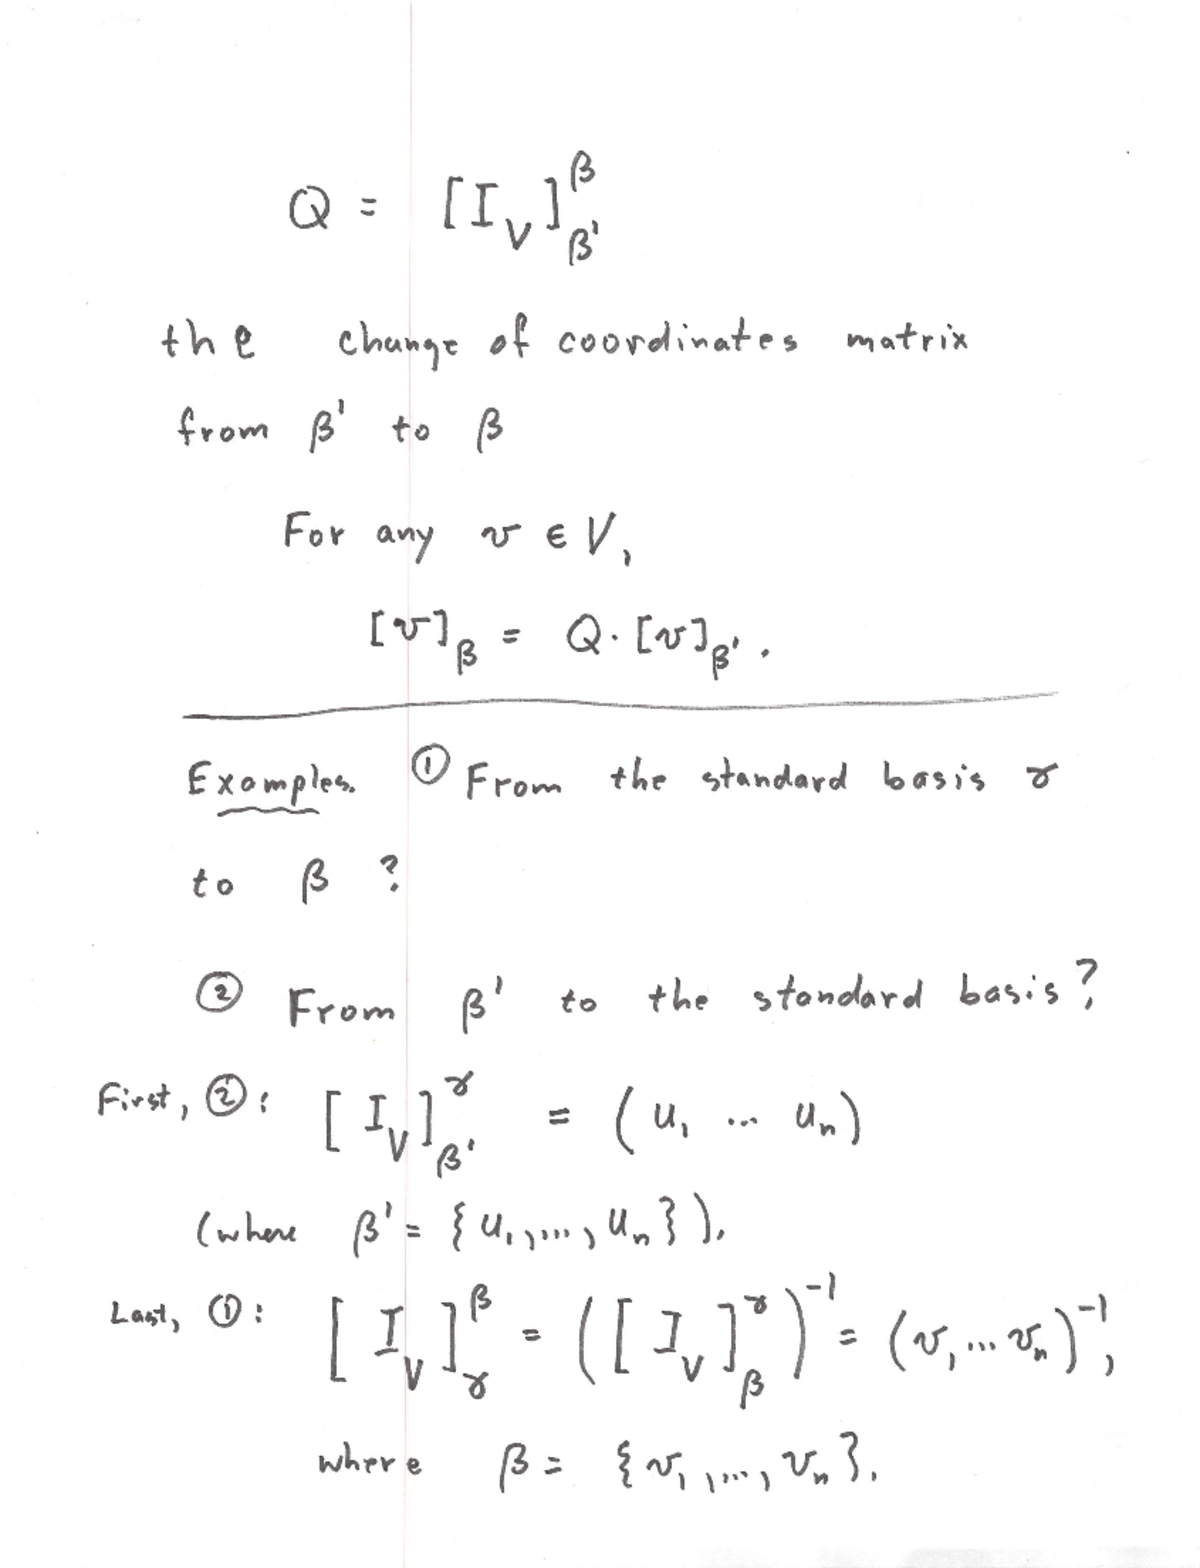 Q = [I_V]^β_β'
the change of coordinates matrix
from β' to β
For any v ∈ V,
[v]_β = Q·[v]_β'.
Examples. ① From the standard basis γ
to β ?
② From β' to the standard basis?
First, ②: [I_V]^γ_β' = (u_1 ... u_n)
(where β' = {u_1,...,u_n}).
Last, ①: [I_V]^β_γ = ([I_V]^γ_β)^-1 = (v_1 ... v_n)^-1,
where β = {v_1,...,v_n}.